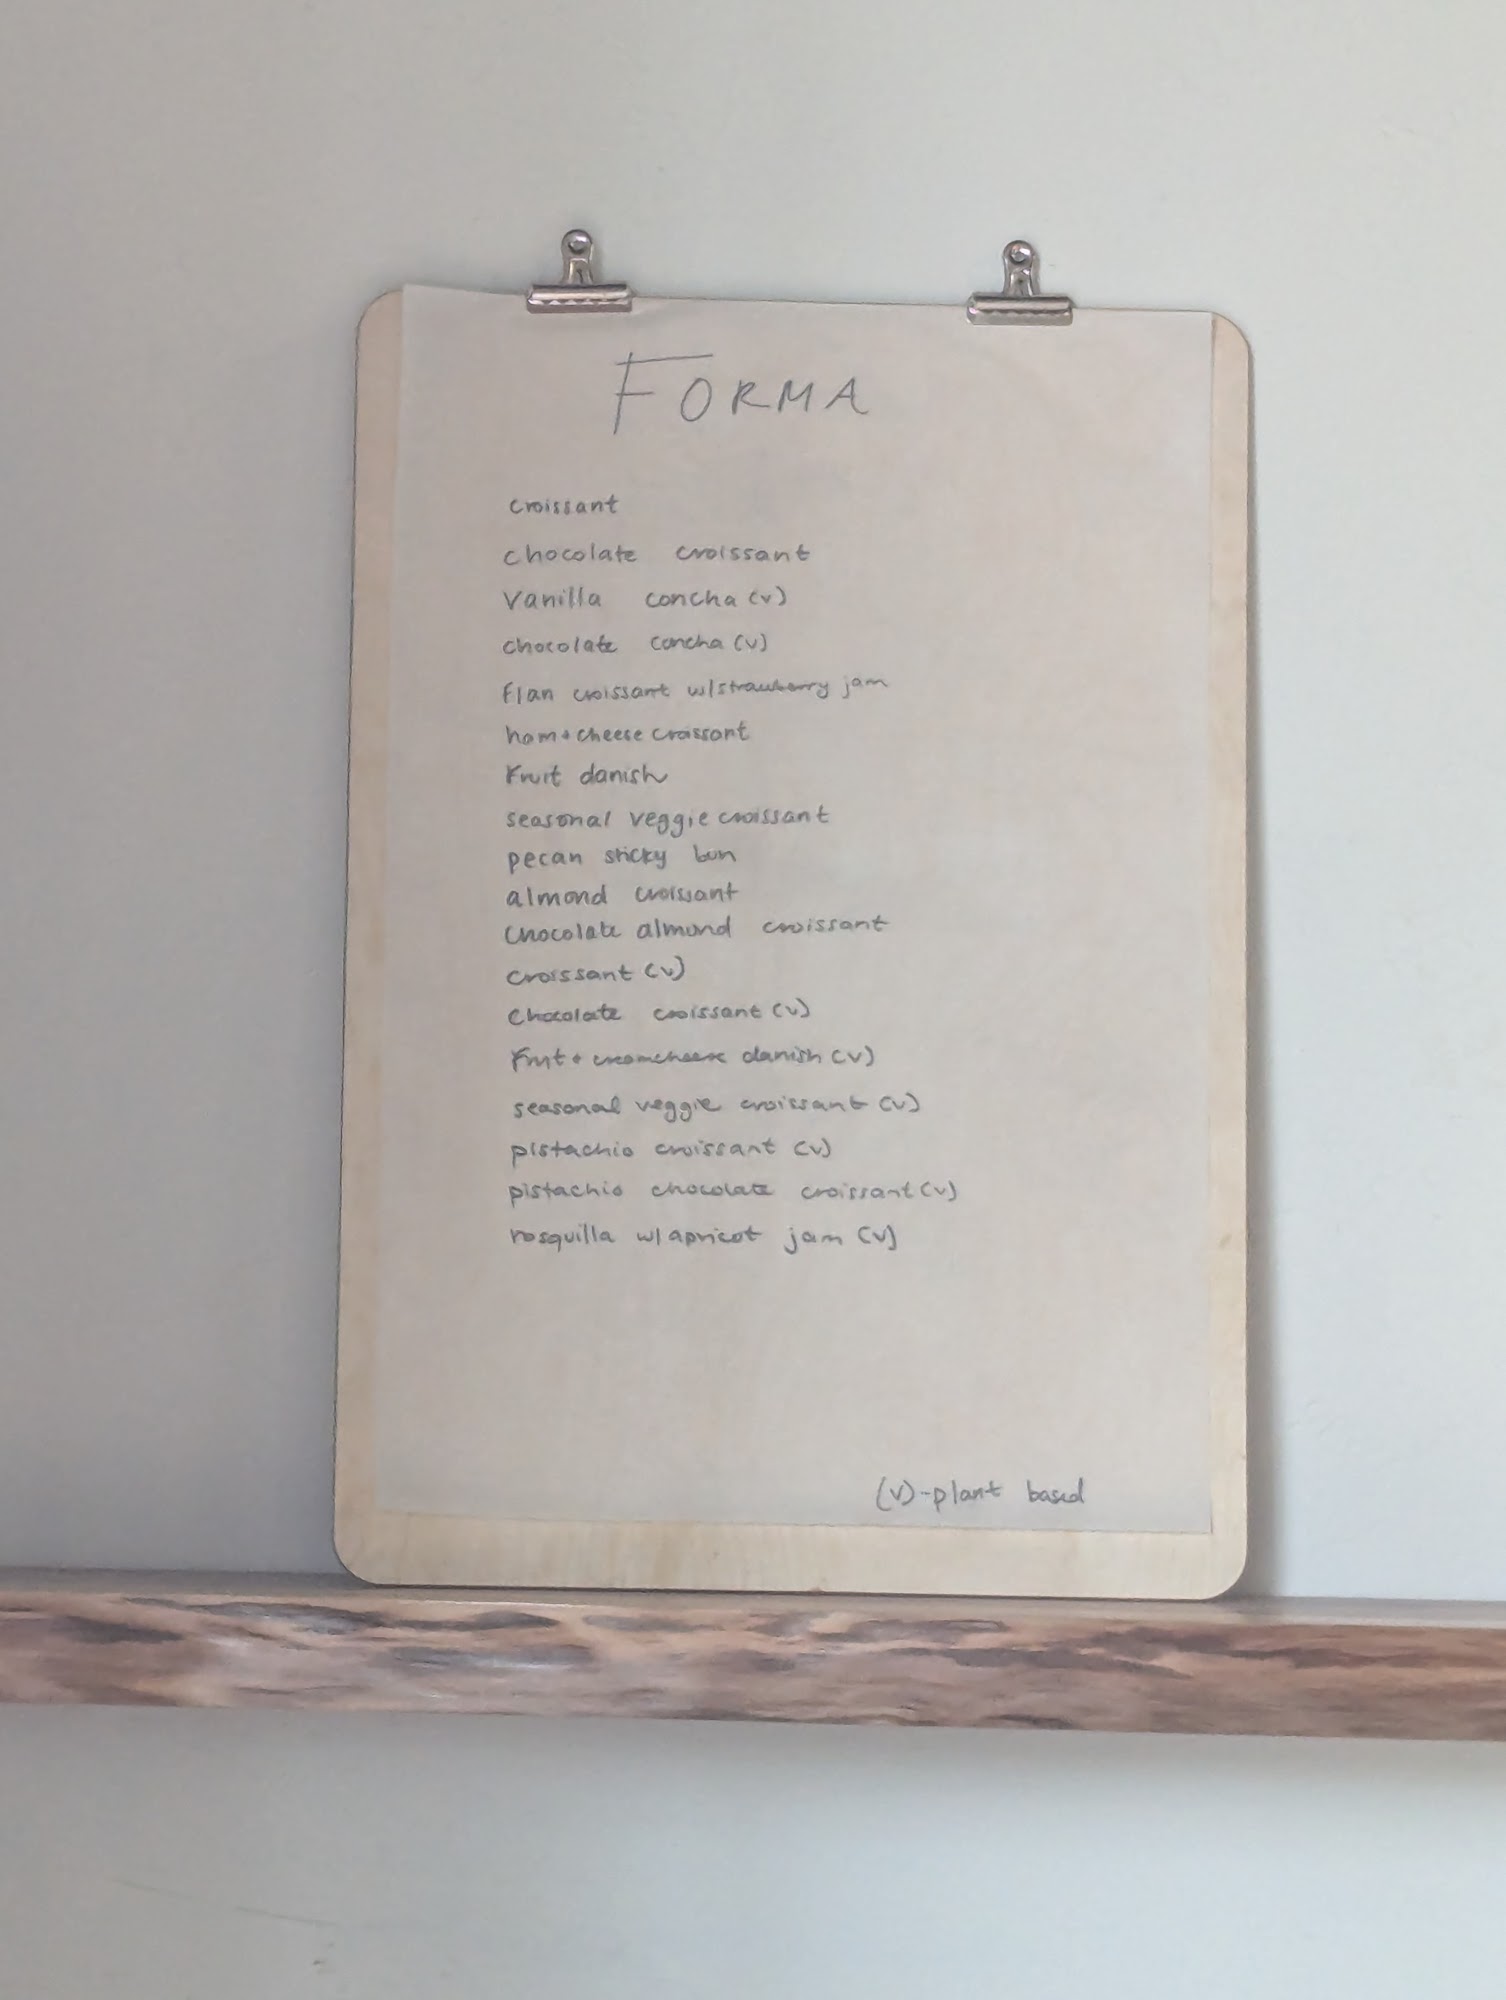 FORMA
croissant
chocolate croissant
Vanilla concha (v)
chocolate concha (v)
flan croissant w/strawberry jam
ham + cheese croissant
Fruit danish
seasonal veggie croissant
pecan sticky bun
almond croissant
chocolate almond croissant
croissant (v)
chocolate croissant (v)
Fruit + creamcheese danish (v)
seasonal veggie croissant (v)
pistachio croissant (v)
pistachio chocolate croissant (v)
rosquilla w/ apricot jam (v)
(v)-plant based